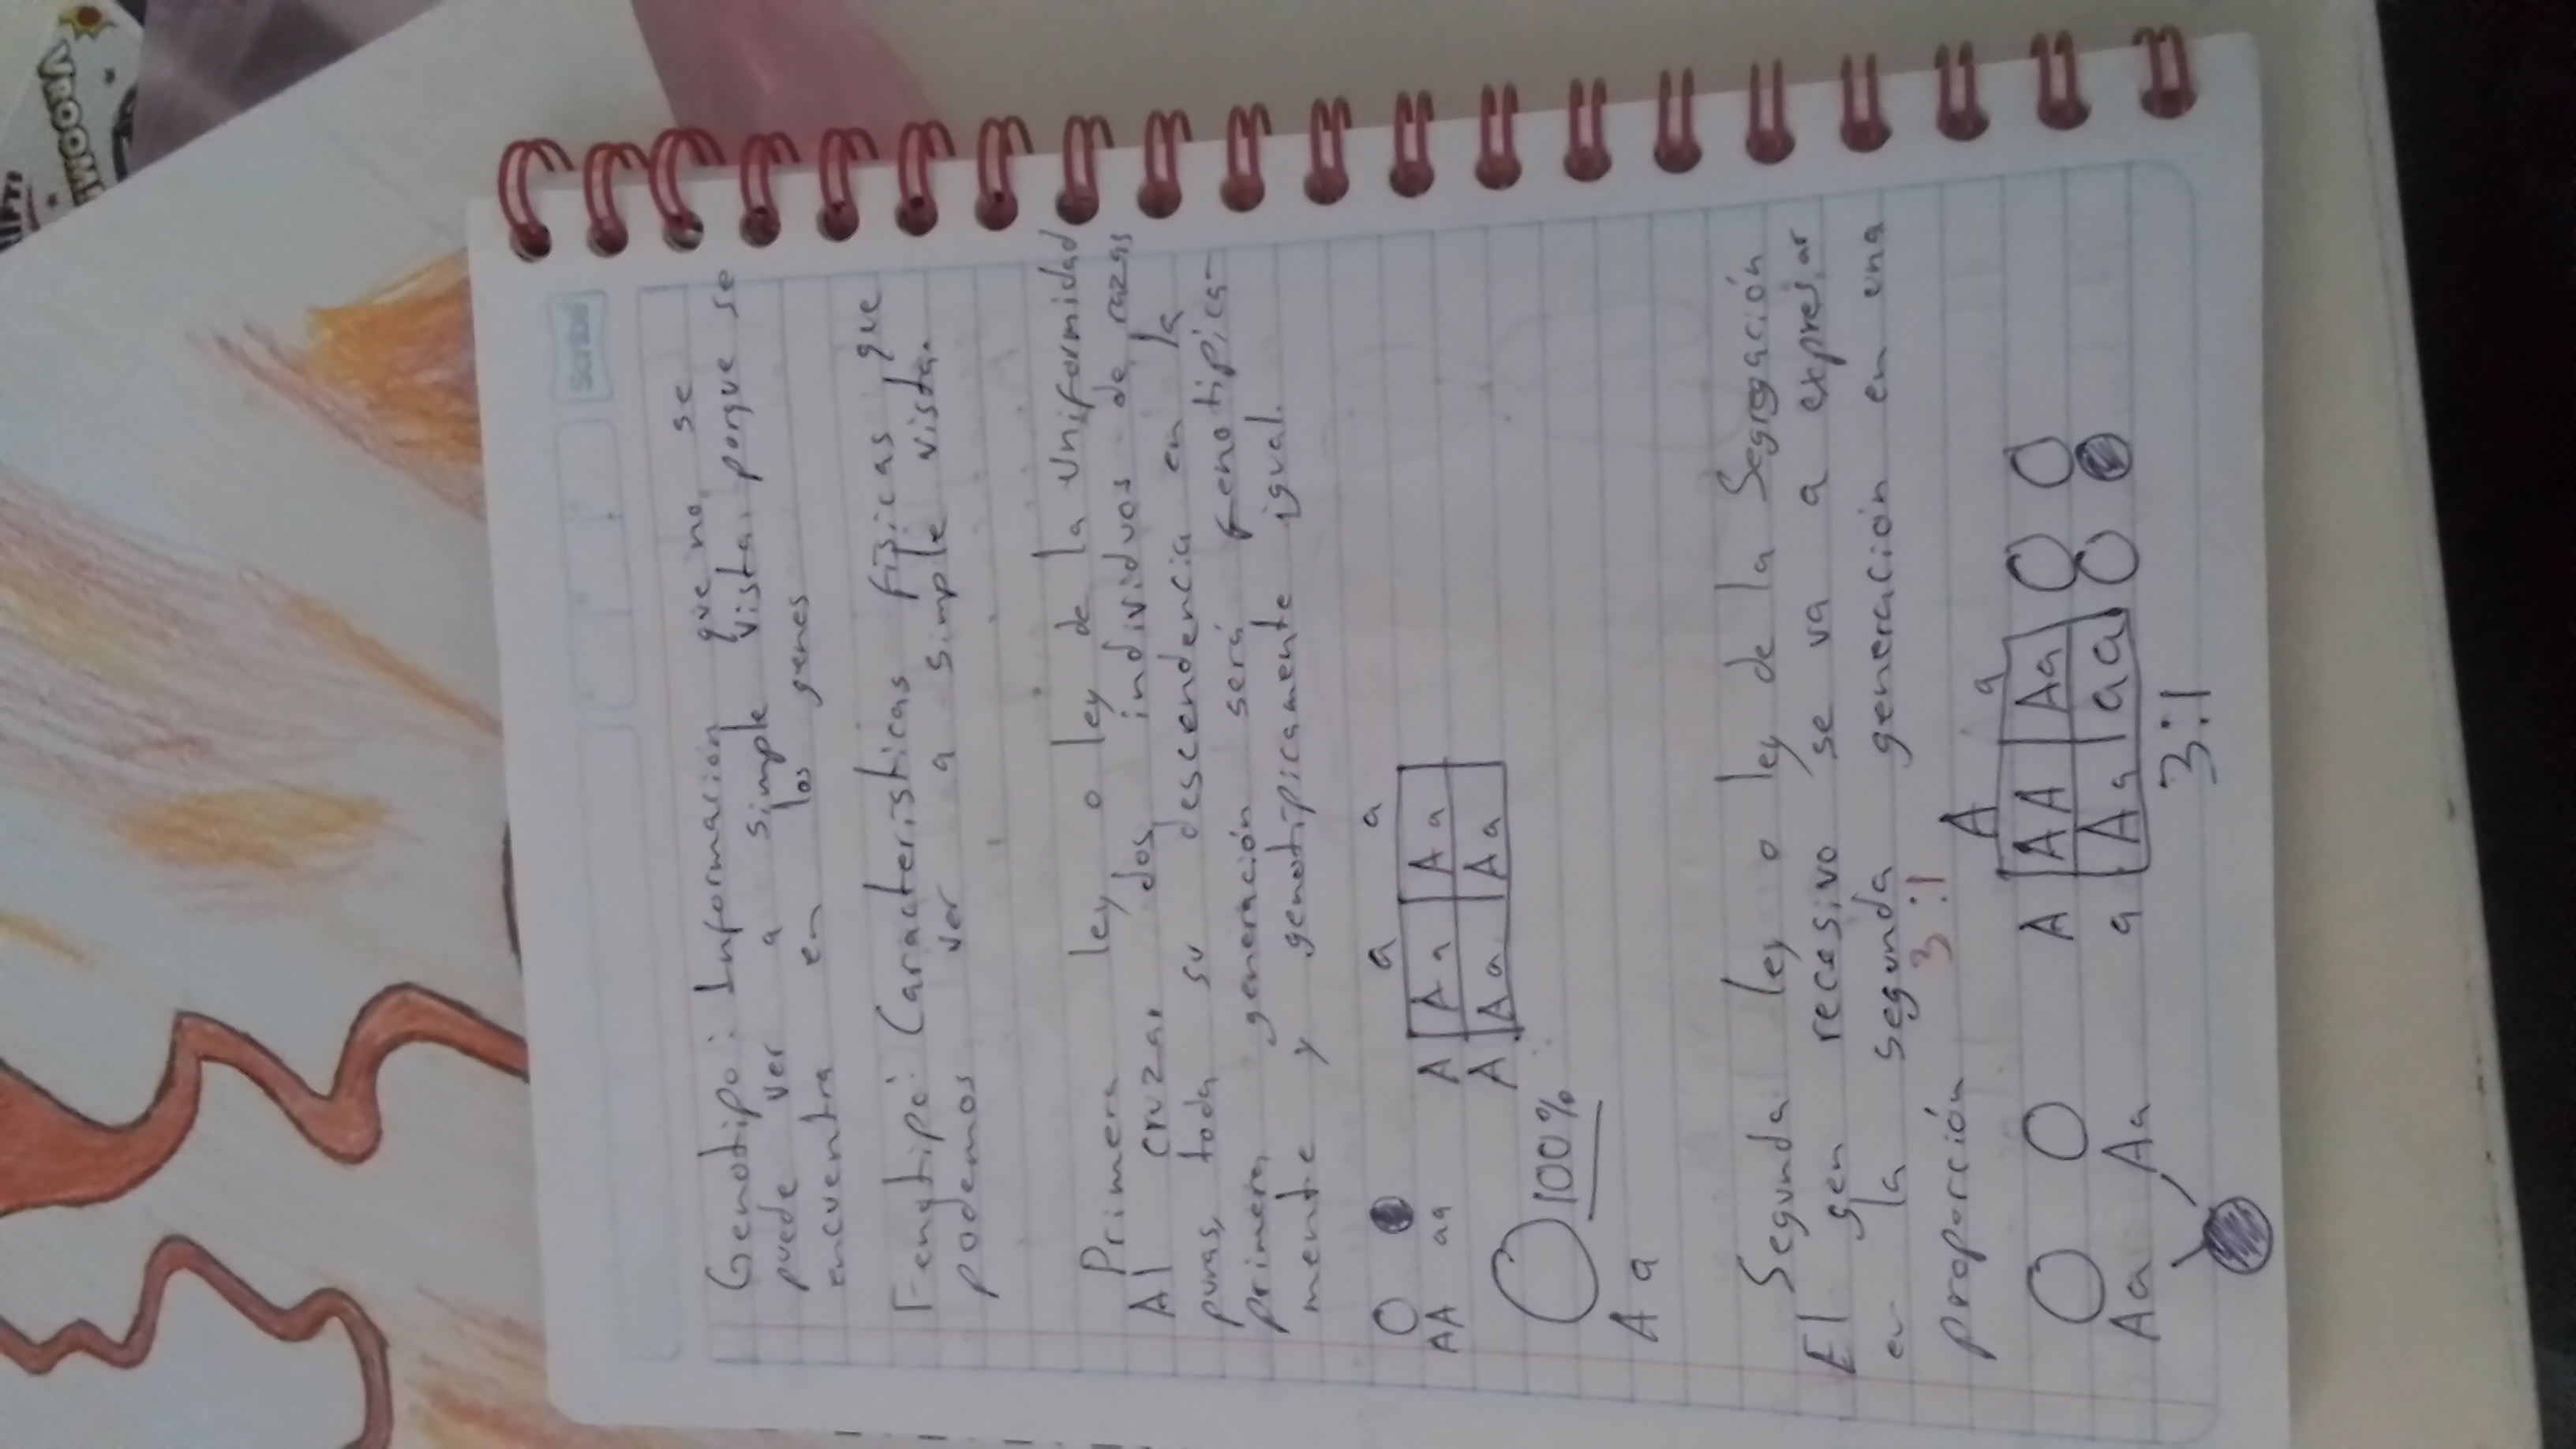 VROOM
Scribe
Genotipo: Información que no se
puede ver a simple vista porque se
encuentra en los genes
Fenotipo: Características físicas que
podemos ver a simple vista.
Primera ley o ley de la Uniformidad
Al cruzar dos individuos de razas
puras, toda su descendencia en la
primera generación será fenotípica-
mente y genotípicamente igual.
a a
AA aa A Aa Aa
A Aa Aa
100%
Aa
Segunda ley o ley de la Segregación
El gen recesivo se va a expresar
en la segunda generación en una
proporción 3:1
A a
A AA Aa
Aa Aa a Aa aa
3:1